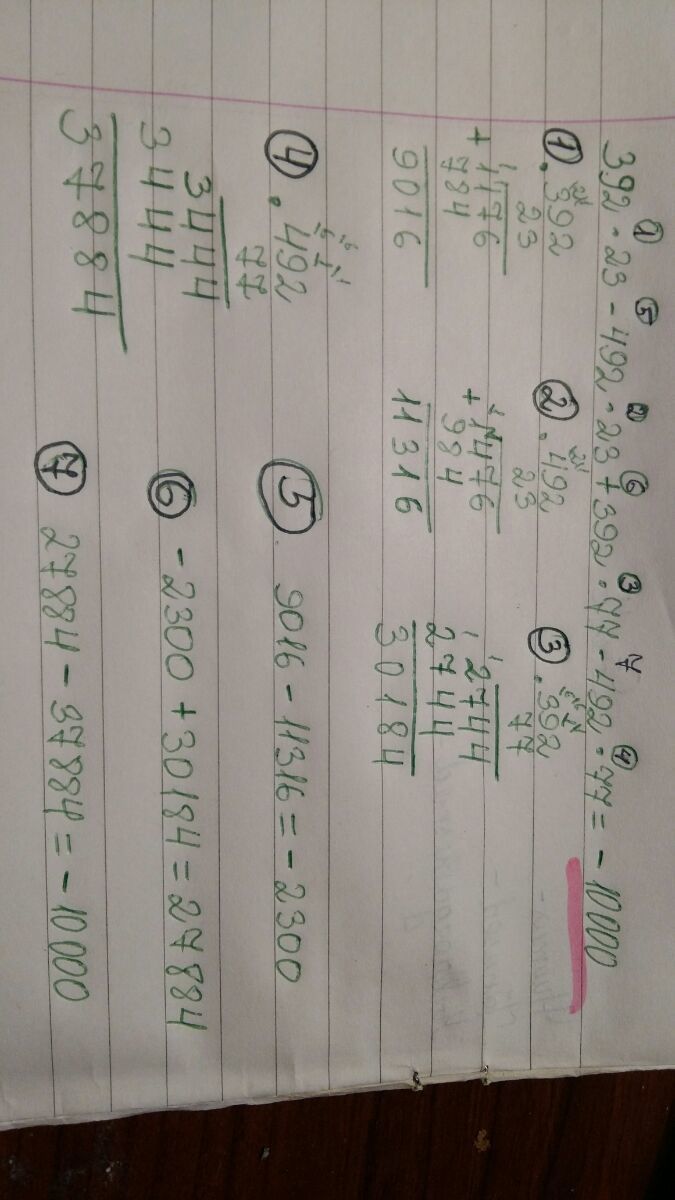 ① ⑤ ② ⑥ ③ 7 ④
392 · 23 - 492 · 23 + 392 · 77 - 492 · 77 = - 10000
① · 392
23
1176
+ 784
9016
② · 492
23
1476
+ 984
11316
③ · 392
77
2744
2744
30184
④ · 492
77
3444
3444
37884
⑤ 9016 - 11316 = - 2300
⑥ - 2300 + 30184 = 27884
⑦ 27884 - 37884 = - 10000